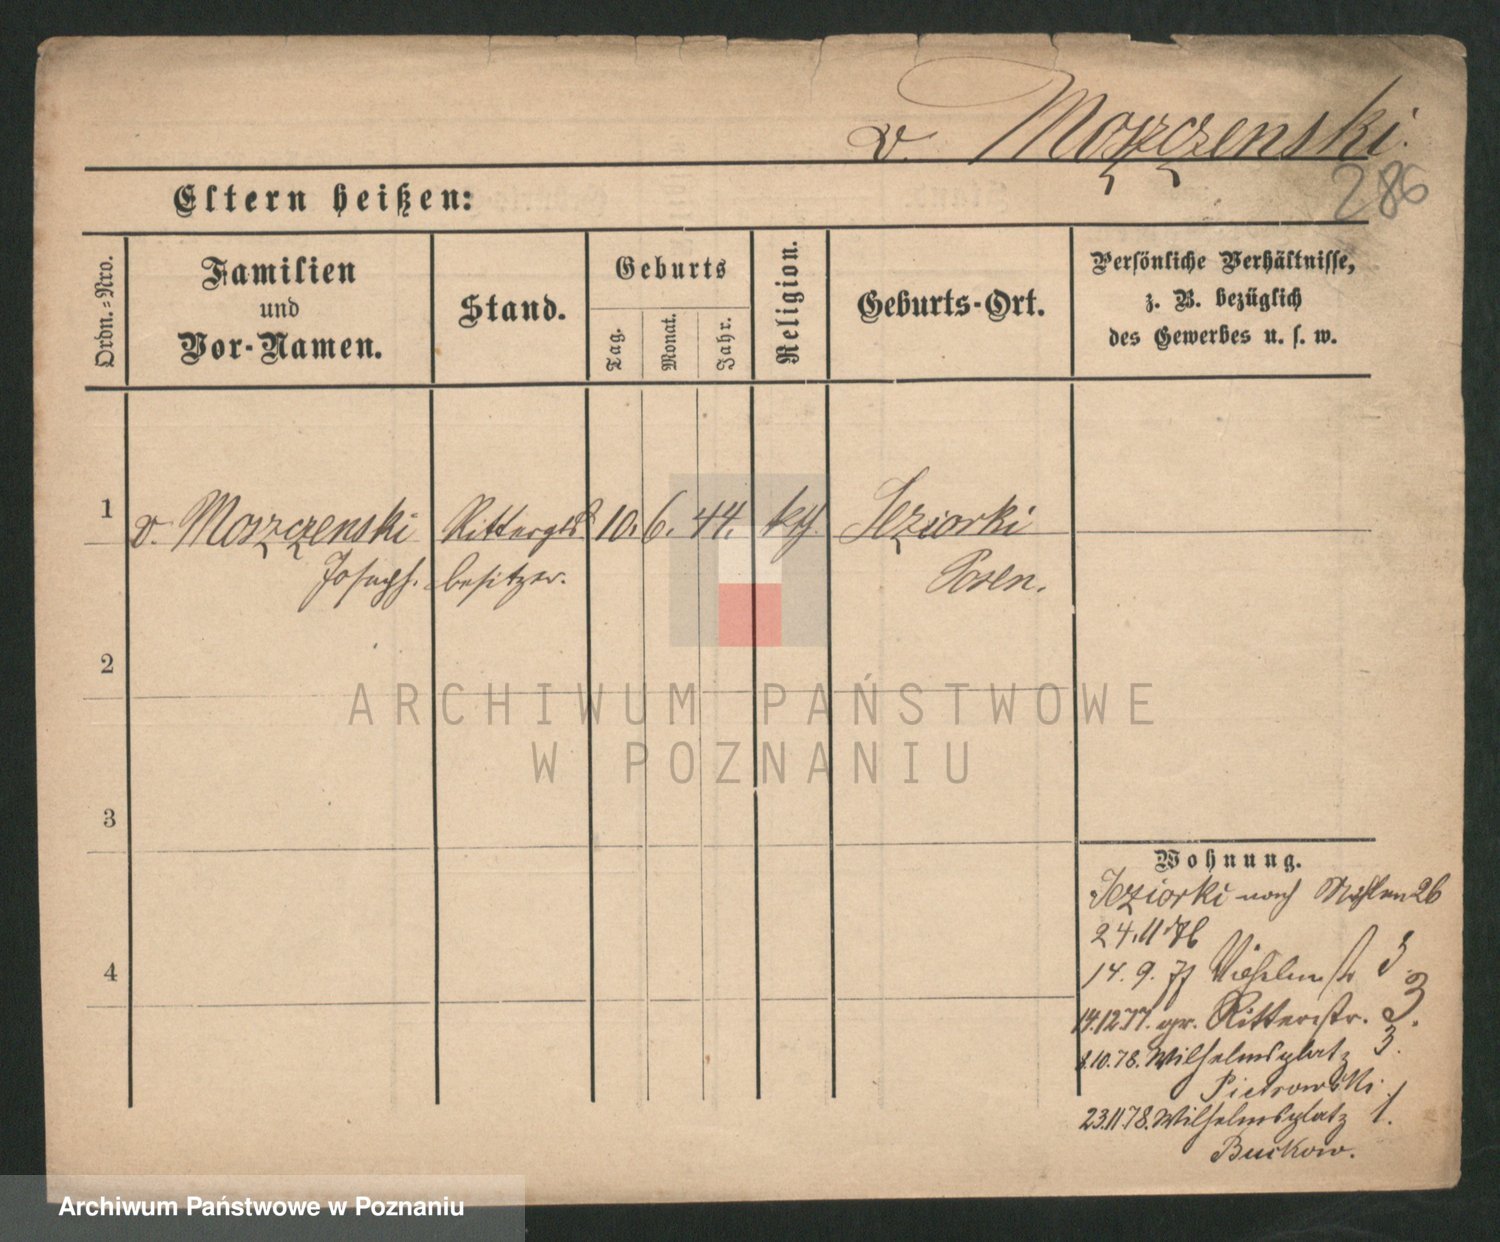 v. Moszczenski.
286
Eltern heißen:
Ordn.-Nro.
Familien
und
Vor-Namen.
Stand.
Geburts
Tag.
Monat.
Jahr.
Religion.
Geburts-Ort.
Persönliche Verhältnisse,
z. B. bezüglich
des Gewerbes u. s. w.
1
v. Moszczenski Rittergts 10. 6. 44. kth. Jeziorki
Joseph. besitzer. Posen.
2
3
4
Wohnung.
Jeziorki nach Mühlen 26
24.11 76
14. 9. 77 Wilhelmstr 3
14.12.77. gr. Ritterstr. 3.
1.10.78. Wilhelmsplatz 3.
Pietrowski.
23.11.78. Wilhelmsplatz 1.
Buckow.
ARCHIWUM PAŃSTWOWE
W POZNANIU
Archiwum Państwowe w Poznaniu